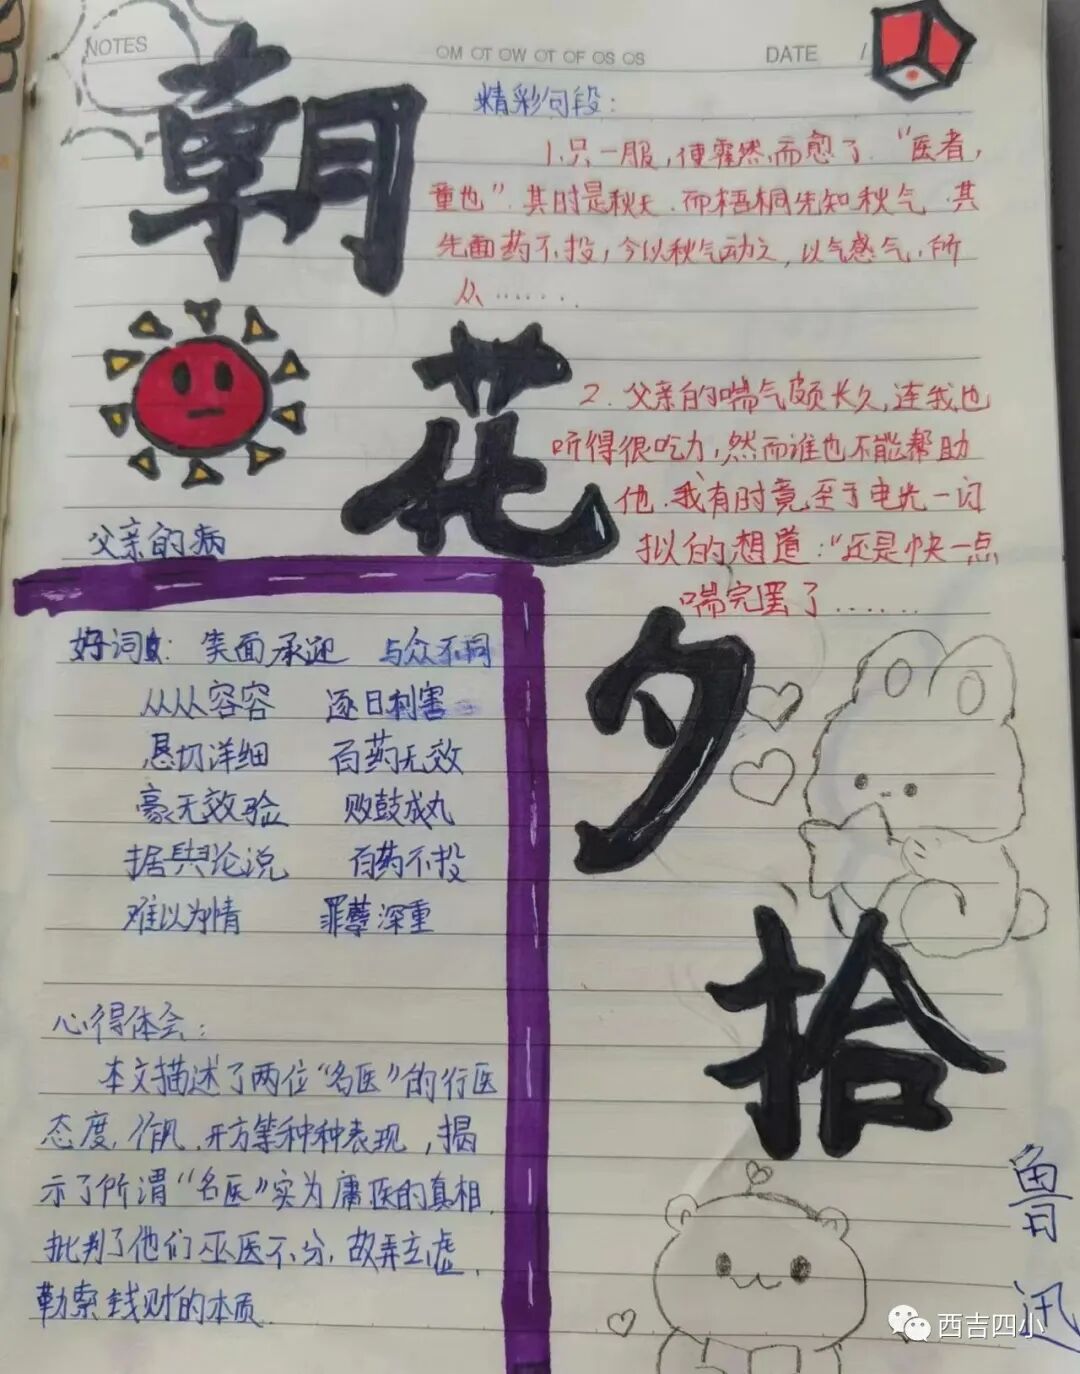 NOTES
OM OT OW OT OF OS OS
DATE /
朝
花
夕
拾
鲁迅
精彩句段：
1.只一服，便霍然而愈了.“医者，
意也”.其时是秋天.而梧桐先知秋气.其
先百药不投，今以秋气动之，以气感气，所
以.......
2.父亲的喘气颇长久，连我也
听得很吃力，然而谁也不能帮助
他.我有时竟至于电光一闪
拟的想道：“还是快一点
喘完罢了......
父亲的病
好词：笑面承迎 与众不同
从从容容 逐日利害
恳切详细 百药无效
豪无效验 败鼓成丸
据舆论说 百药不投
难以为情 罪孽深重
心得体会：
本文描述了两位“名医”的行医
态度、作风、开方等种种表现，揭
示了所谓“名医”实为庸医的真相，
批判了他们巫医不分，故弄玄虚，
勒索钱财的本质
西吉四小